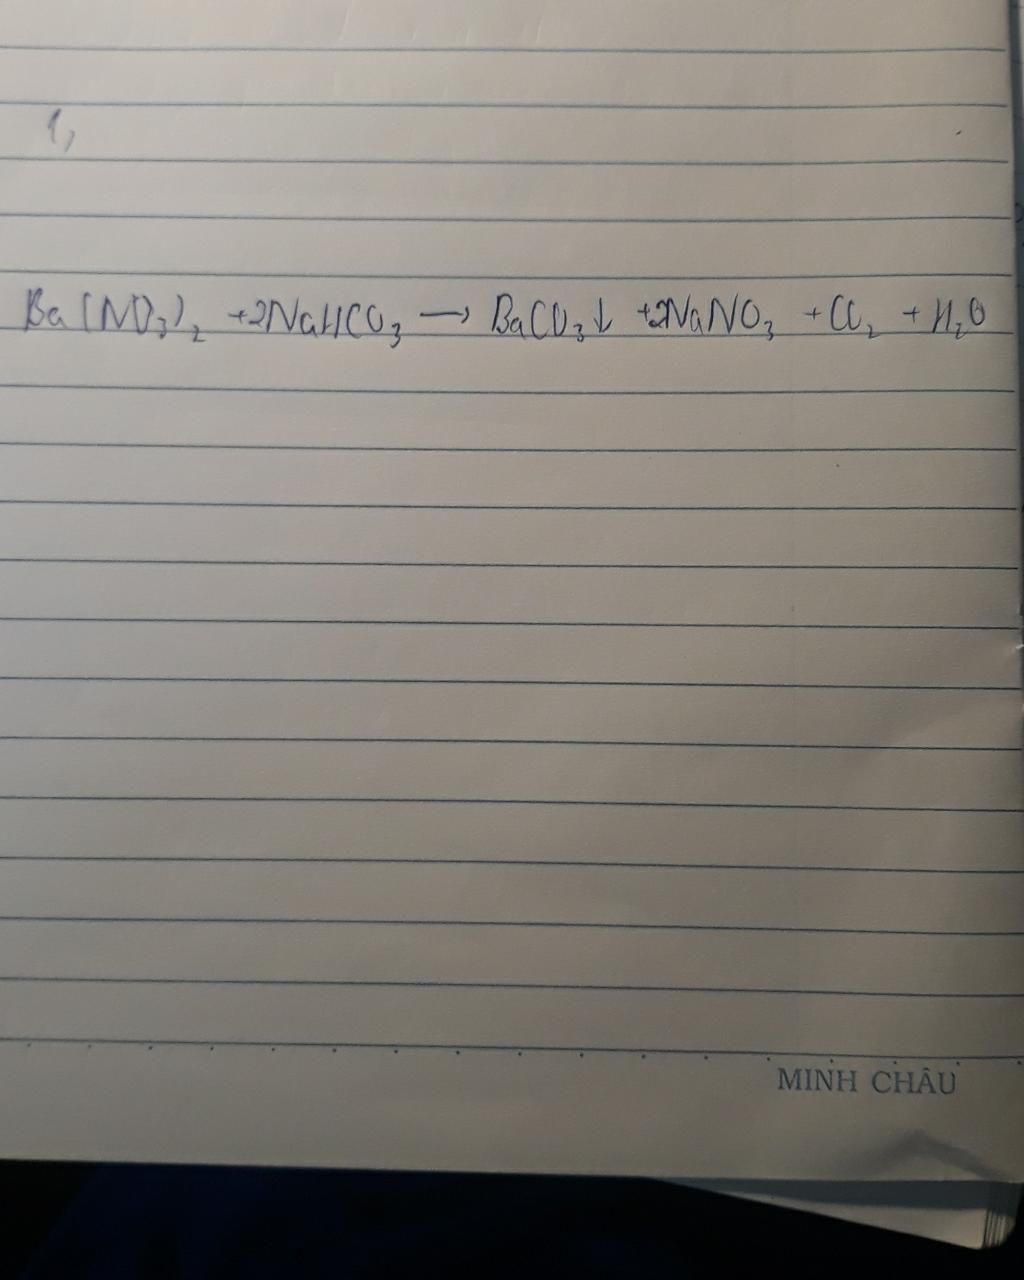 1,
Ba(NO₃)₂ +2NaHCO₃ → BaCO₃↓ +2NaNO₃ +CO₂ + H₂O
MINH CHÂU